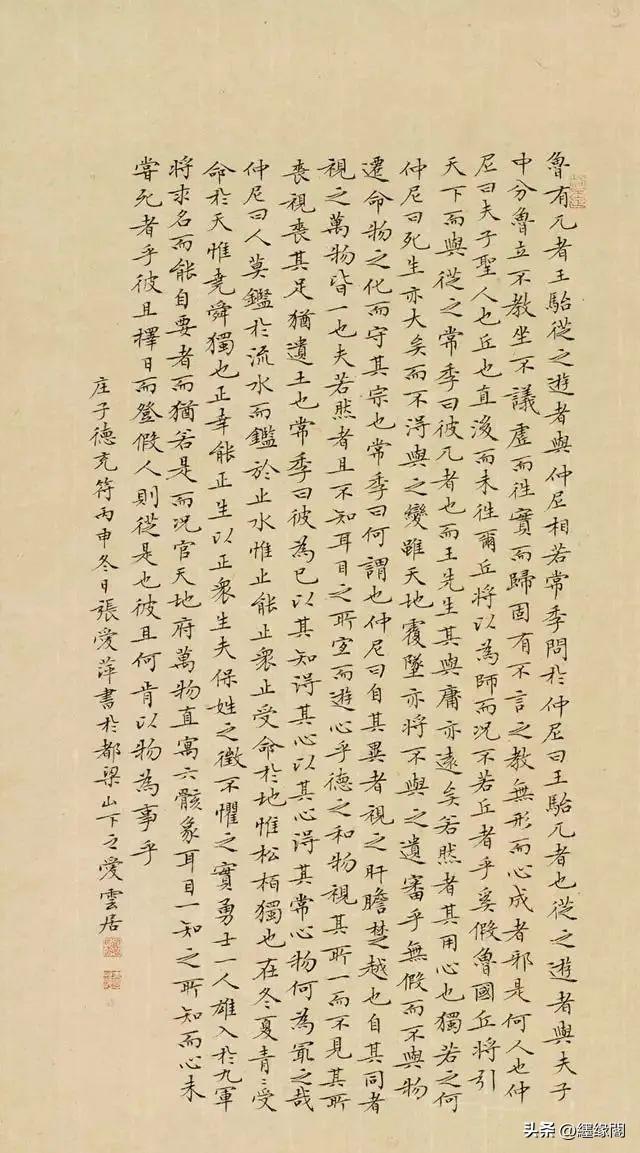 魯有兀者王駘從之遊者與仲尼相若常季問於仲尼曰王駘兀者也從之遊者與夫子
中分魯立不教坐不議虛而往實而歸固有不言之教無形而心成者邪是何人也仲
尼曰夫子聖人也丘也直後而未往爾丘將以為師而況不若丘者乎奚假魯國丘將引
天下而與從之常季曰彼兀者也而王先生其與庸亦遠矣若然者其用心也獨若之何
仲尼曰死生亦大矣而不淂與之變雖天地覆墜亦將不與之遺審乎無假而不與物
遷命物之化而守其宗也常季曰何謂也仲尼曰自其異者視之肝膽楚越也自其同者
視之萬物皆一也夫若然者且不知耳目之所宜而遊心乎德之和物視其所一而不見其所
喪視喪其足猶遺土也常季曰彼為已以其知淂其心以其心淂其常心物何為冣之哉
仲尼曰人莫鑑於流水而鑑於止水惟止能止衆止受命於地惟松栢獨也在冬夏青〻受
命於天惟堯舜獨也正幸能正生以正衆生夫保姓之徵不懼之實勇士一人雄入於九軍
將求名而能自要者而猶若是而況官天地府萬物直寓六骸象耳目一知之所知而心未
嘗死者乎彼且擇日而登假人則從是也彼且何肯以物為事乎
庄子德充符丙申冬日張愛萍書於都梁山下之愛雲居
头条 @纆缘閣